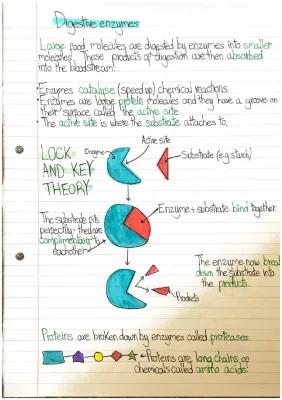 Digestive enzymes
Large food molecules are digested by enzymes into smaller
molecules. These products of digestion are then absorbed
into the bloodstream.
• Enzymes catalyse (speed up) chemical reactions.
• Enzymes are large protein molecules and they have a groove on
their surface called the active site.
• The active site is where the substrate attaches to.
LOCK
AND KEY
THEORY
Enzyme
Active site
Substrate (e.g starch)
The substrate fits
perfectly - they are
complimentary to
eachother
Enzyme + substrate bind together
The enzyme now break
down the substrate into
the products.
Products
Proteins are broken down by enzymes called proteases.
Proteins are long chains of
chemicals called amino acids.